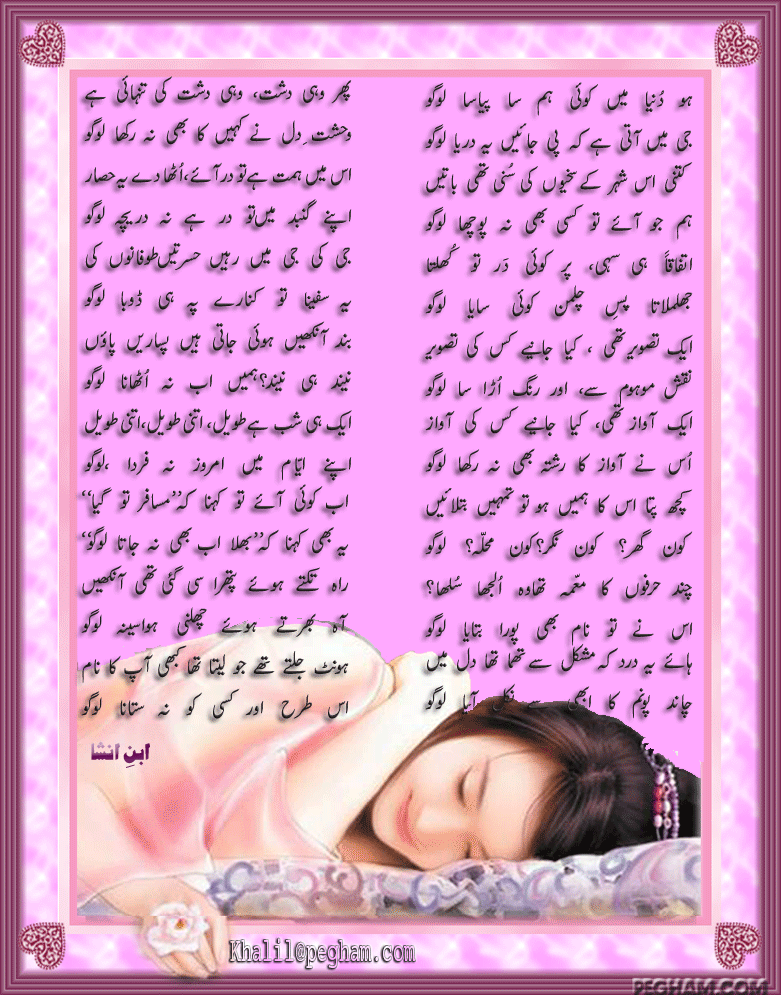 ہو دُنیا میں کوئی ہم سا پیاسا لوگو
جی میں آتی ہے کہ پی جائیں یہ دریا لوگو
کتنی اس شہر کے سخیوں کی سُنی تھی باتیں
ہم جو آئے تو کسی بھی نہ پوچھا لوگو
اتفاقاً ہی سہی، پر کوئی دَر تو کُھلتا
جھلملاتا پسِ چلمن کوئی سایا لوگو
ایک تصویر تھی ، کیا جانیے کس کی تصویر
نقش موہوم سے، اور رنگ اُڑا سا لوگو
ایک آواز تھی، کیا جانیے کس کی آواز
اُس نے آواز کا رشتہ بھی نہ رکھا لوگو
کچھ پتا اس کا ہمیں ہو تو تمہیں بتلائیں
کون گھر؟ کون نگر؟ کون محلّہ؟ لوگو
چند حرفوں کا معّمہ تھاوہ اُلجھا سُلھا؟
اس نے تو نام بھی پورا بتایا لوگو
ہائے یہ درد کہ مشکل سے تھما تھا دل میں
چاند پونم کا ابھی سے نکل آیا لوگو
پھر وہی دشت، وہی دشت کی تنہائی ہے
وحشت ِدل نے کہیں کا بھی نہ رکھا لوگو
اس میں ہمت ہے تو در آئے، اُٹھا دے یہ حصار
اپنے گنبد میں تو در ہے نہ دریچہ لوگو
جی کی جی میں رہیں حسرتیں طوفانوں کی
یہ سفینا تو کنارے پہ ہی ڈوبا لوگو
بند آنکھیں ہوئی جاتی ہیں پساریں پاؤں
نیند ہی نیند؟ ہمیں اب نہ اُٹھانا لوگو
ایک ہی شب ہے طویل، اتنی طویل، اتنی طویل
اپنے ایّام میں امروز نہ فردا ،لوگو
اب کوئی آئے تو کہنا کہ”مسافر تو گیا“
یہ بھی کہنا کہ”بھلا اب بھی نہ جاتا لوگو“
راہ تکتے ہوئے پتھرا سی گئی تھی آنکھیں
آہ بھرتے ہوئے چھلنی ہواسینہ لوگو
ہونٹ جلتے تھے جو لیتا تھا کبھی آپ کا نام
اس طرح اور کسی کو نہ ستانا لوگو
ابنِ انشا
Khalil@pegham.com
PEGHAM.COM